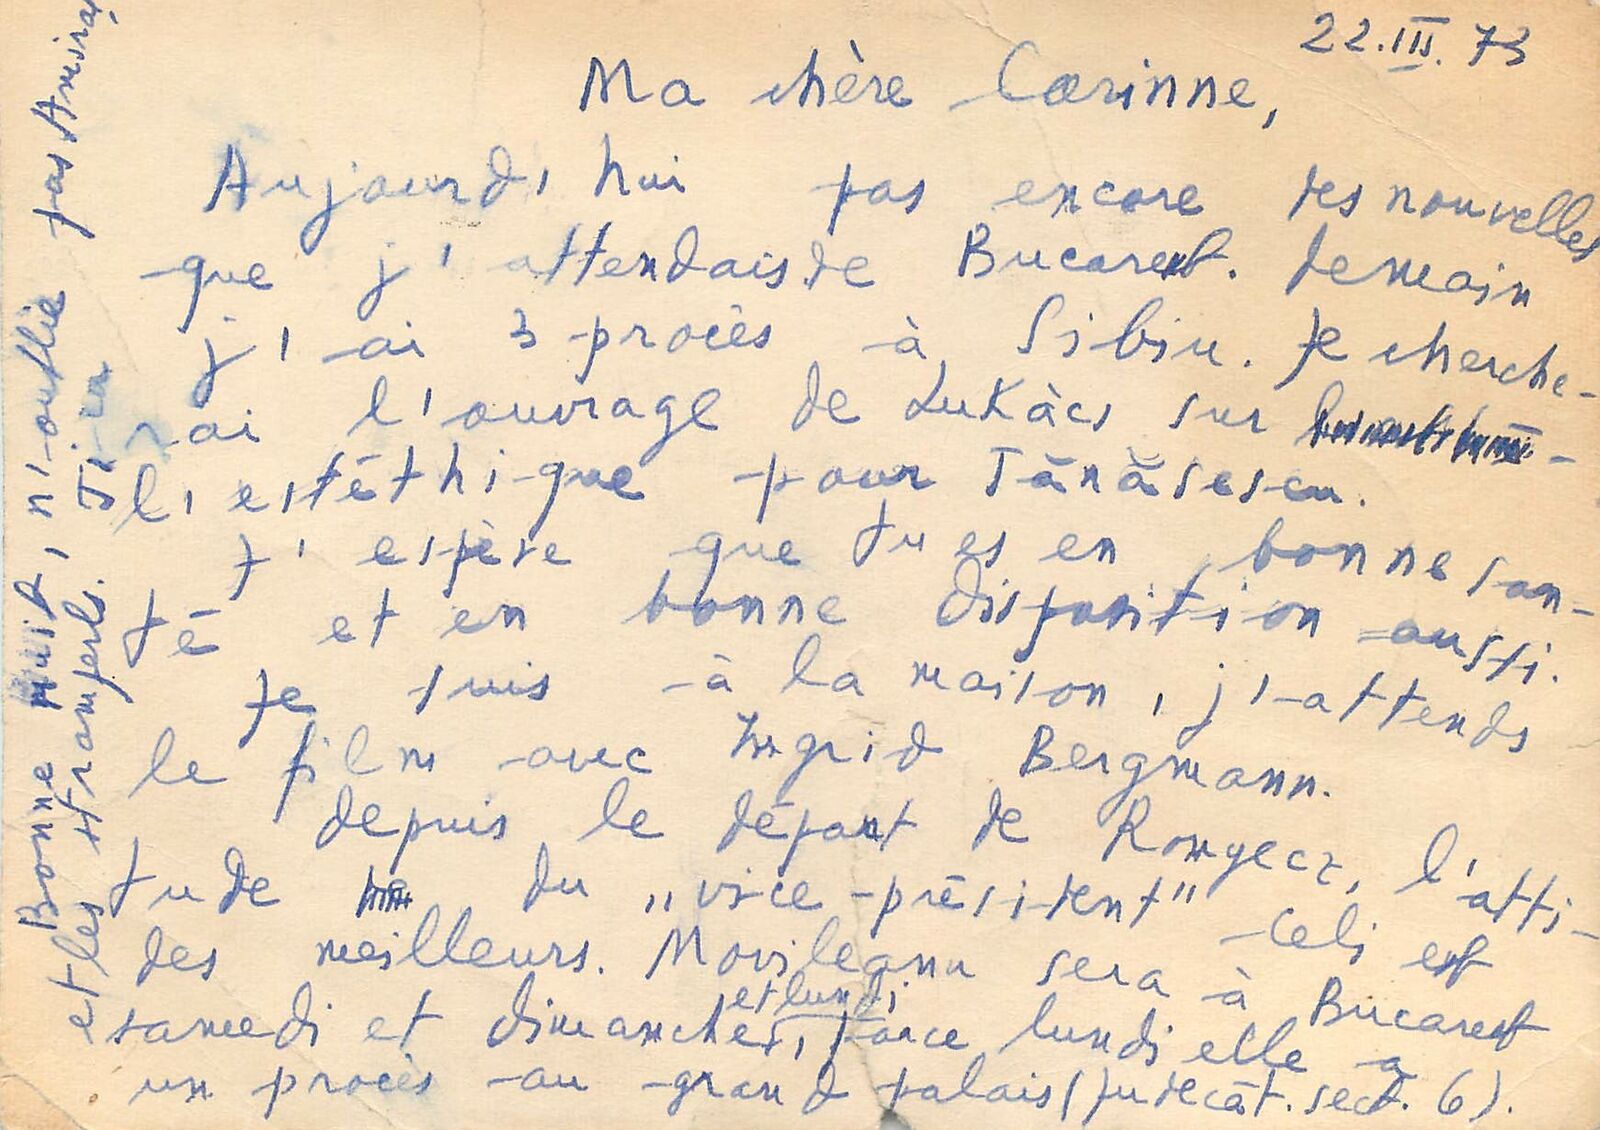 22.III.73
Ma chère Corinne,
Aujourd'hui pas encore des nouvelles
que j'attendais de Bucarest. Demain
j'ai 3 procès à Sibiu. Je cherche-
rai l'ouvrage de Lukàcs sur
l'estéthique pour Tănăsescu.
J'espère que tu es en bonne san-
té et en bonne disposition aussi.
Je suis à la maison, j'attends
le film avec Ingrid Bergmann.
Depuis le départ de Rongecz, l'atti-
tude du "vice-président" Celi est
des meilleurs. Movileanu sera à Bucarest
samedi et dimanche, et lundi, parce lundi elle a
un procès au grand palais (Judecăt. sect. 6).
Bonne nuit, n'oublie pas
et les transferts.